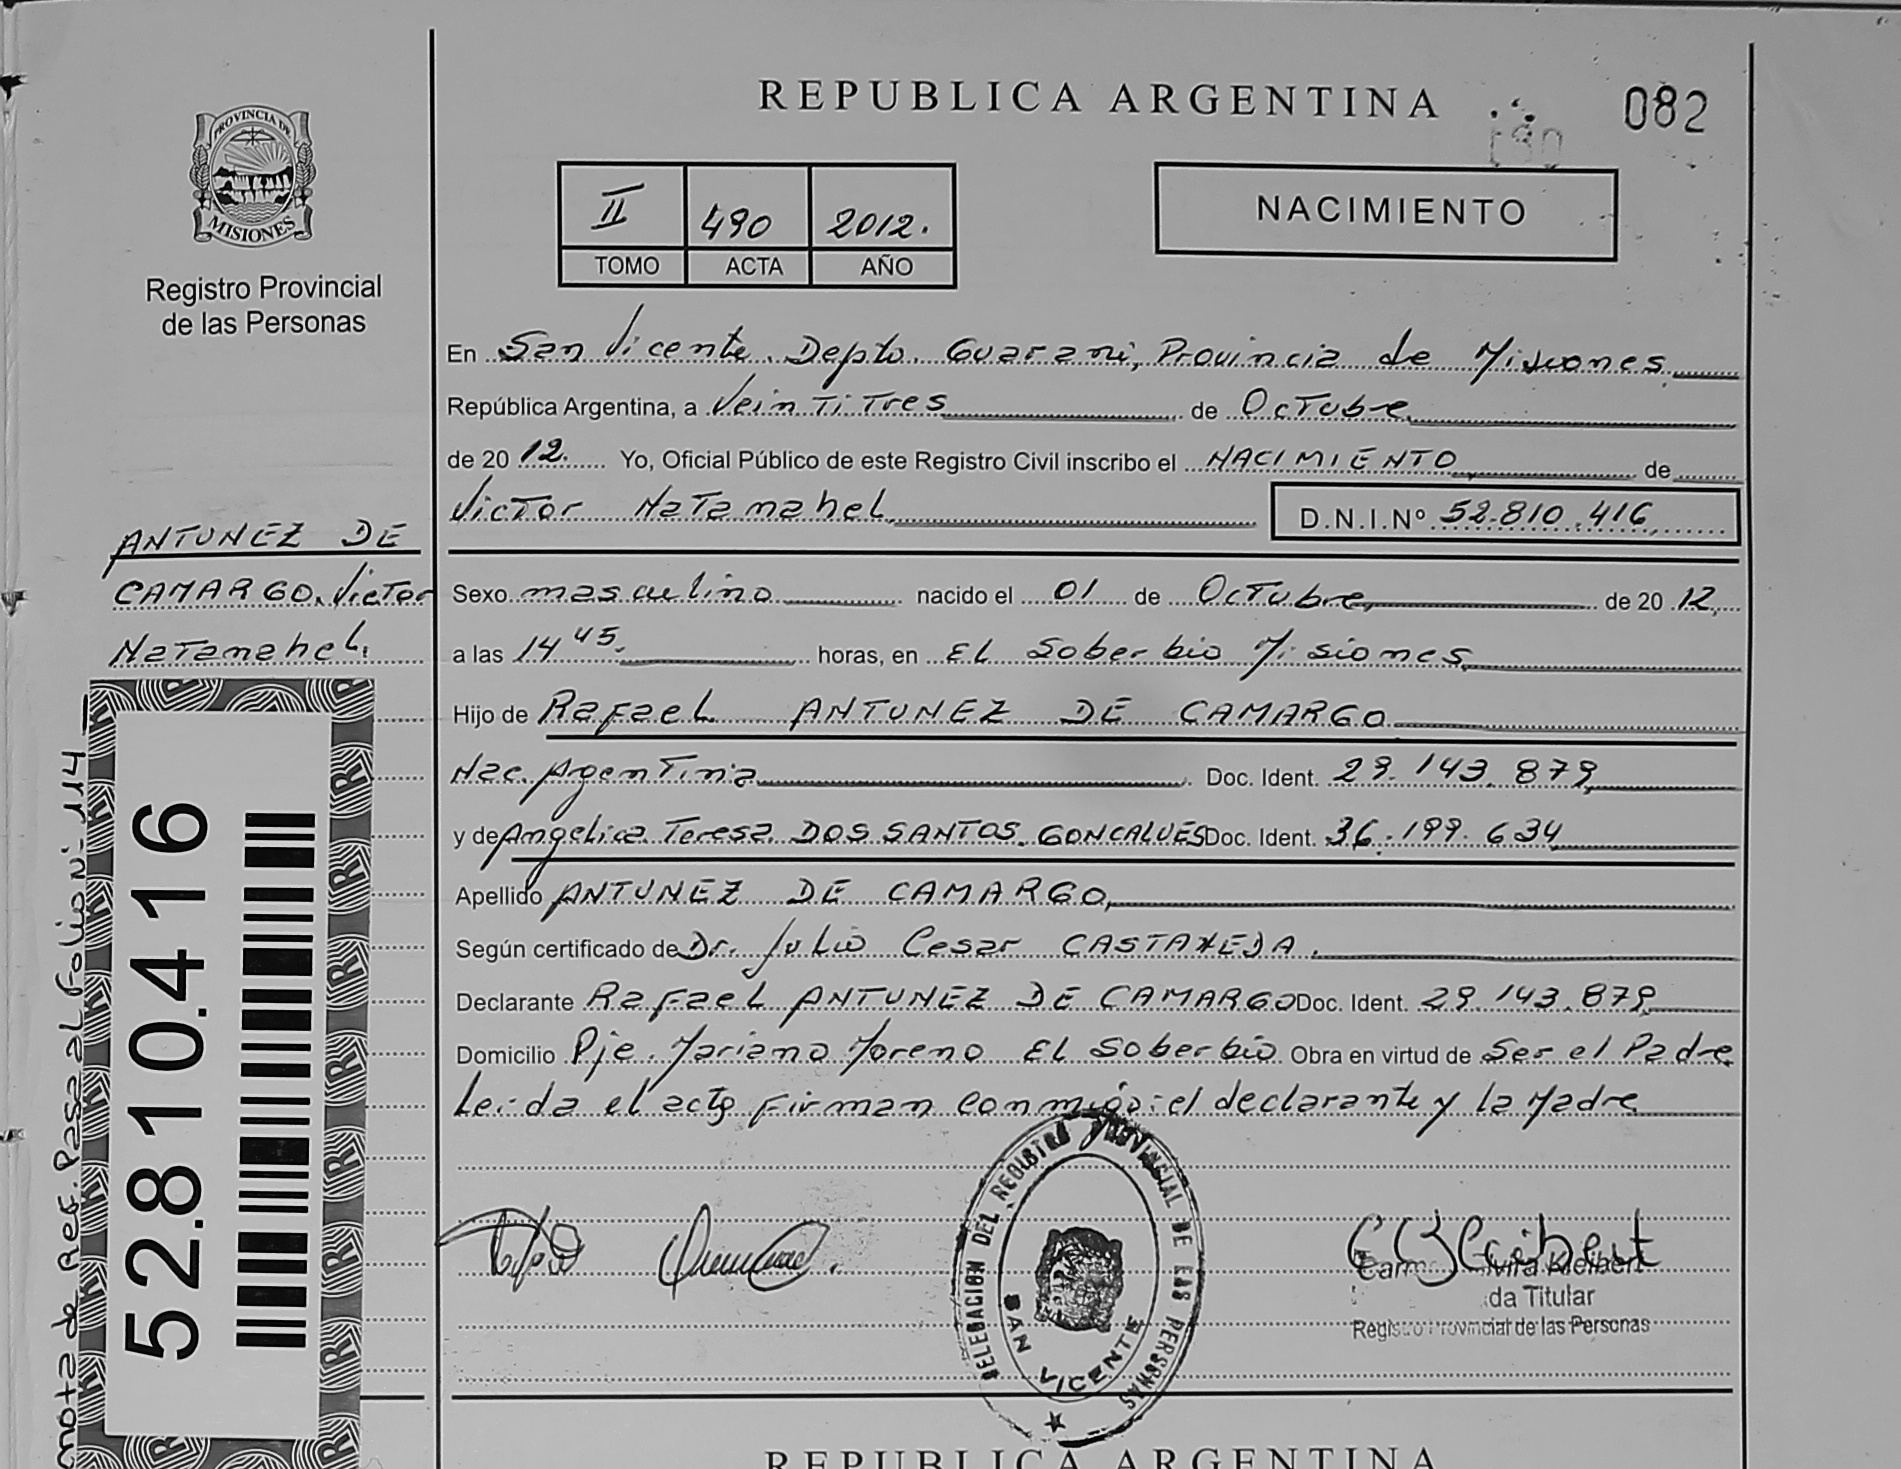 REPUBLICA ARGENTINA
082
PROVINCIA DE
MISIONES
Registro Provincial
de las Personas
II 490 2012.
TOMO ACTA AÑO
NACIMIENTO
En San Vicente. Depto. Guarani, Provincia de Misiones
República Argentina, a Veintitres de Octubre
de 2012. Yo, Oficial Público de este Registro Civil inscribo el NACIMIENTO de
Victor Natanahel D.N.I.Nº 52.810.416
ANTUNEZ DE
CAMARGO, Victor
Natanahel.
Sexo masculino nacido el 01 de Octubre de 2012,
a las 14 45. horas, en El Soberbio Misiones
Hijo de Rafael ANTUNEZ DE CAMARGO
Nac. Argentina Doc. Ident. 29.143.879
y de Angelica Teresa DOS SANTOS GONCALVES Doc. Ident. 36.199.634
Apellido ANTUNEZ DE CAMARGO,
Según certificado de Dr. Julio Cesar CASTAÑEDA.
Declarante Rafael ANTUNEZ DE CAMARGO Doc. Ident. 29.143.879
Domicilio Pje. Mariano Moreno El Soberbio Obra en virtud de Ser el Padre
Leida el acta firman conmigo: el declarante y la Madre
nota de Ref. Pasa al Folio Nº 114
52.810.416
DELEGACION DEL REGISTRO PROVINCIAL DE LAS PERSONAS
SAN VICENTE
da Titular
Registro Provincial de las Personas
REPUBLICA ARGENTINA